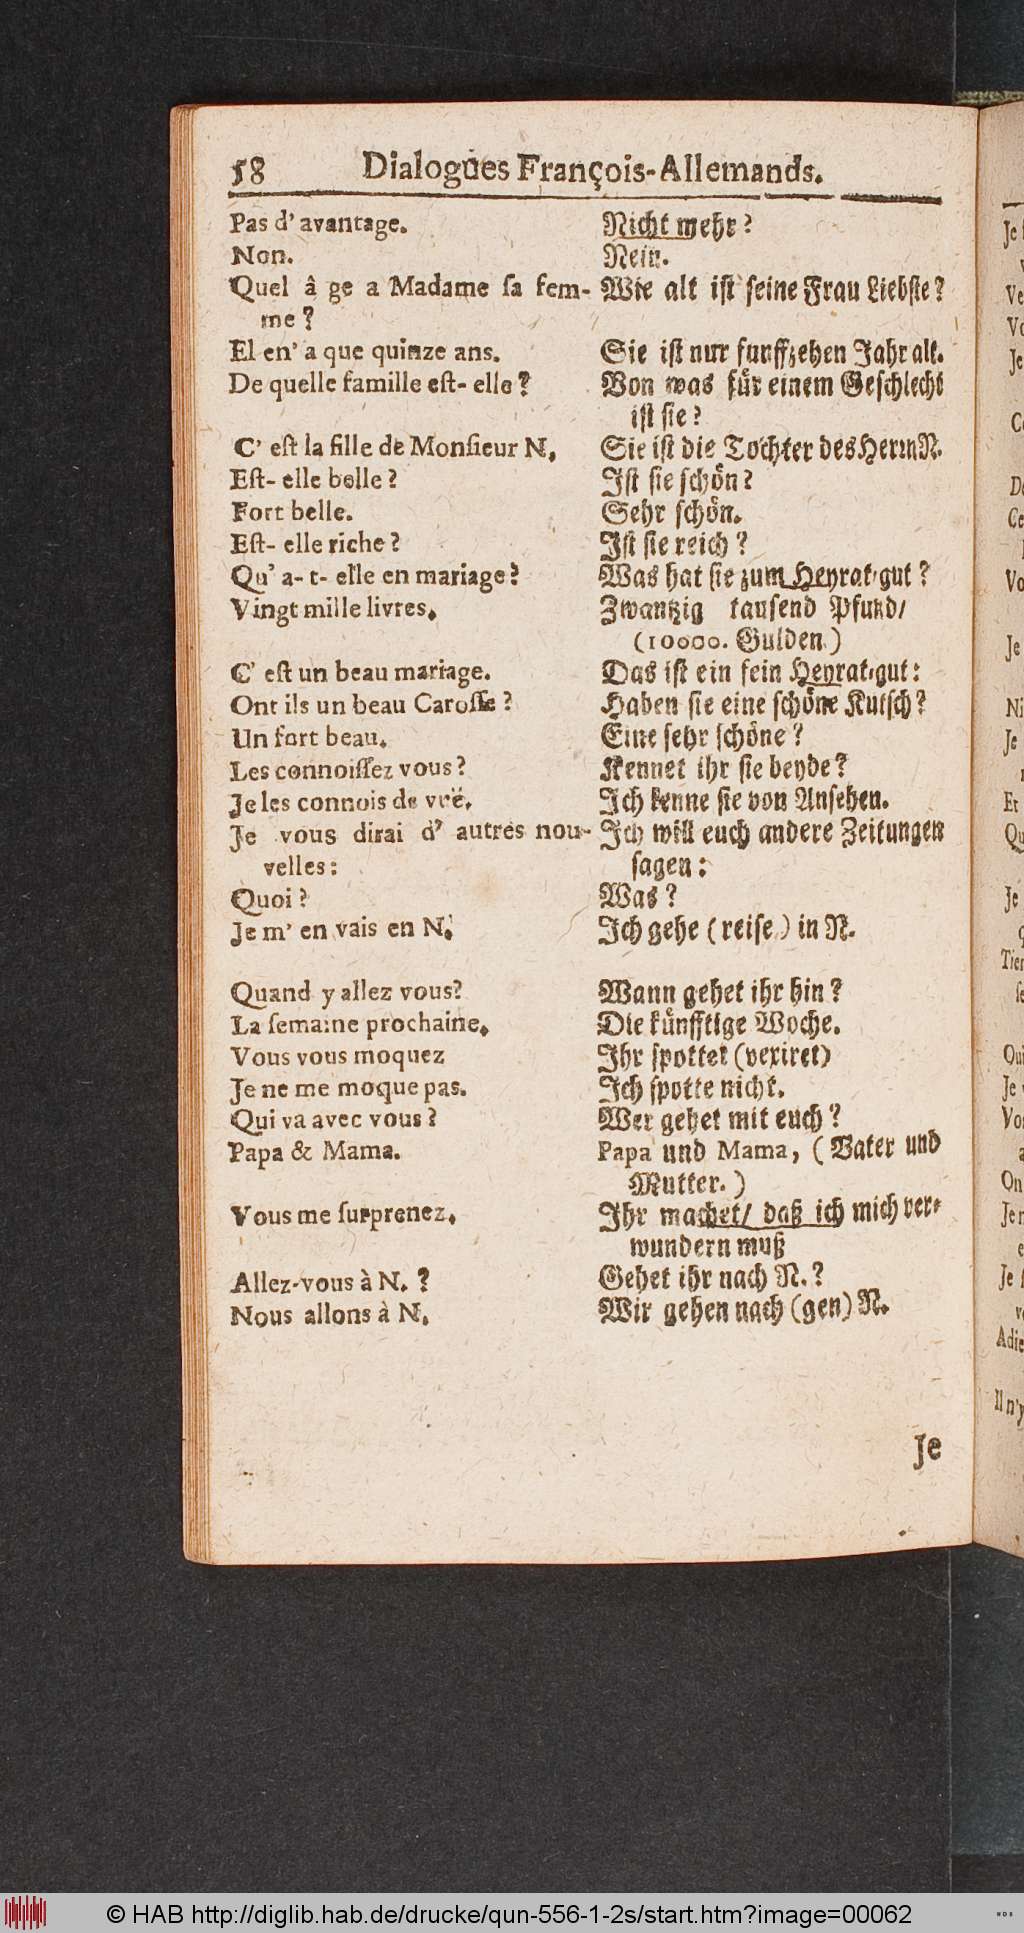 58 Dialogues François-Allemands.
Pas d' avantage. Nicht mehr?
Non. Nein.
Quel â ge a Madame sa fem- Wie alt ist seine Frau Liebste?
me?
El en' a que quinze ans. Sie ist nur funffzehen Jahr alt.
De quelle famille est- elle? Von was für einem Geschlecht
ist sie?
C' est la fille de Monsieur N. Sie ist die Tochter des Herrn N.
Est- elle belle? Ist sie schön?
Fort belle. Sehr schön.
Est- elle riche? Ist sie reich?
Qu' a- t- elle en mariage? Was hat sie zum Heyrat-gut?
Vingt mille livres. Zwantzig tausend Pfund/
(10000. Gulden.)
C' est un beau mariage. Das ist ein fein Heyrat-gut:
Ont ils un beau Carosse? Haben sie eine schöne Kutsch?
Un fort beau. Eine sehr schöne?
Les connoissez vous? Kennet ihr sie beyde?
Je les connois de vuë. Ich kenne sie von Ansehen.
Je vous dirai d' autres nou- Ich will euch andere Zeitungen
velles: sagen:
Quoi? Was?
Je m' en vais en N. Ich gehe (reise) in N.
Quand y allez vous? Wann gehet ihr hin?
La semaine prochaine. Die künfftige Woche.
Vous vous moquez Ihr spottet (vexiret)
Je ne me moque pas. Ich spotte nicht.
Qui va avec vous? Wer gehet mit euch?
Papa & Mama. Papa und Mama, (Vater und
Mutter.)
Vous me surprenez. Ihr machet/ daß ich mich ver-
wundern muß
Allez-vous à N.? Gehet ihr nach N.?
Nous allons à N. Wir gehen nach (gen) N.
Je
© HAB http://diglib.hab.de/drucke/qun-556-1-2s/start.htm?image=00062